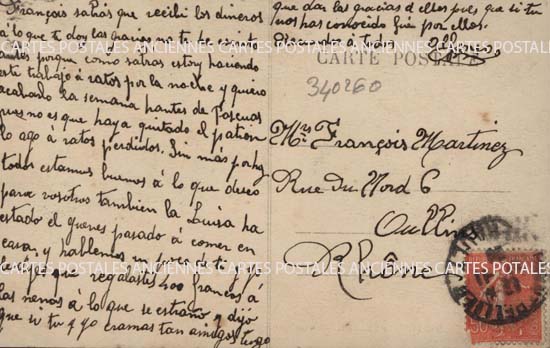 François sabrás que recibí los dineros
á lo que te doy las gracias no te he escrito
antes porque como sabras estoy haciendo
este trabajo á ratos por la noche y quiero
acabarlo la semana pantes de Pascuas
pues no es que haya quitado el patrón
lo ago á ratos perdidos. Sin más por hoy
todos estamos buenos á lo que deseo
para vosotros tambien la Luisa ha
estado el jueves pasado á comer en
casa y hablemos un poco de ti y le
dije que regalastes 400 francos á
las nenas á lo que se estraño y dijó
que si tu y yo eramos tan amigos tengo
que das las gracias á ellos pues que si tu
nos has conocido fue por ellos.
Recuerdos á todos
CARTE POSTALE
340260
Mrs François Martinez
Rue du Nord 6
Oullins
Rhône
CARTES POSTALES ANCIENNES CARTES POSTALES ANCIENNES CARTES POSTALES
POSTALES ANCIENNES CARTES POSTALES ANCIENNES CARTES POSTALES